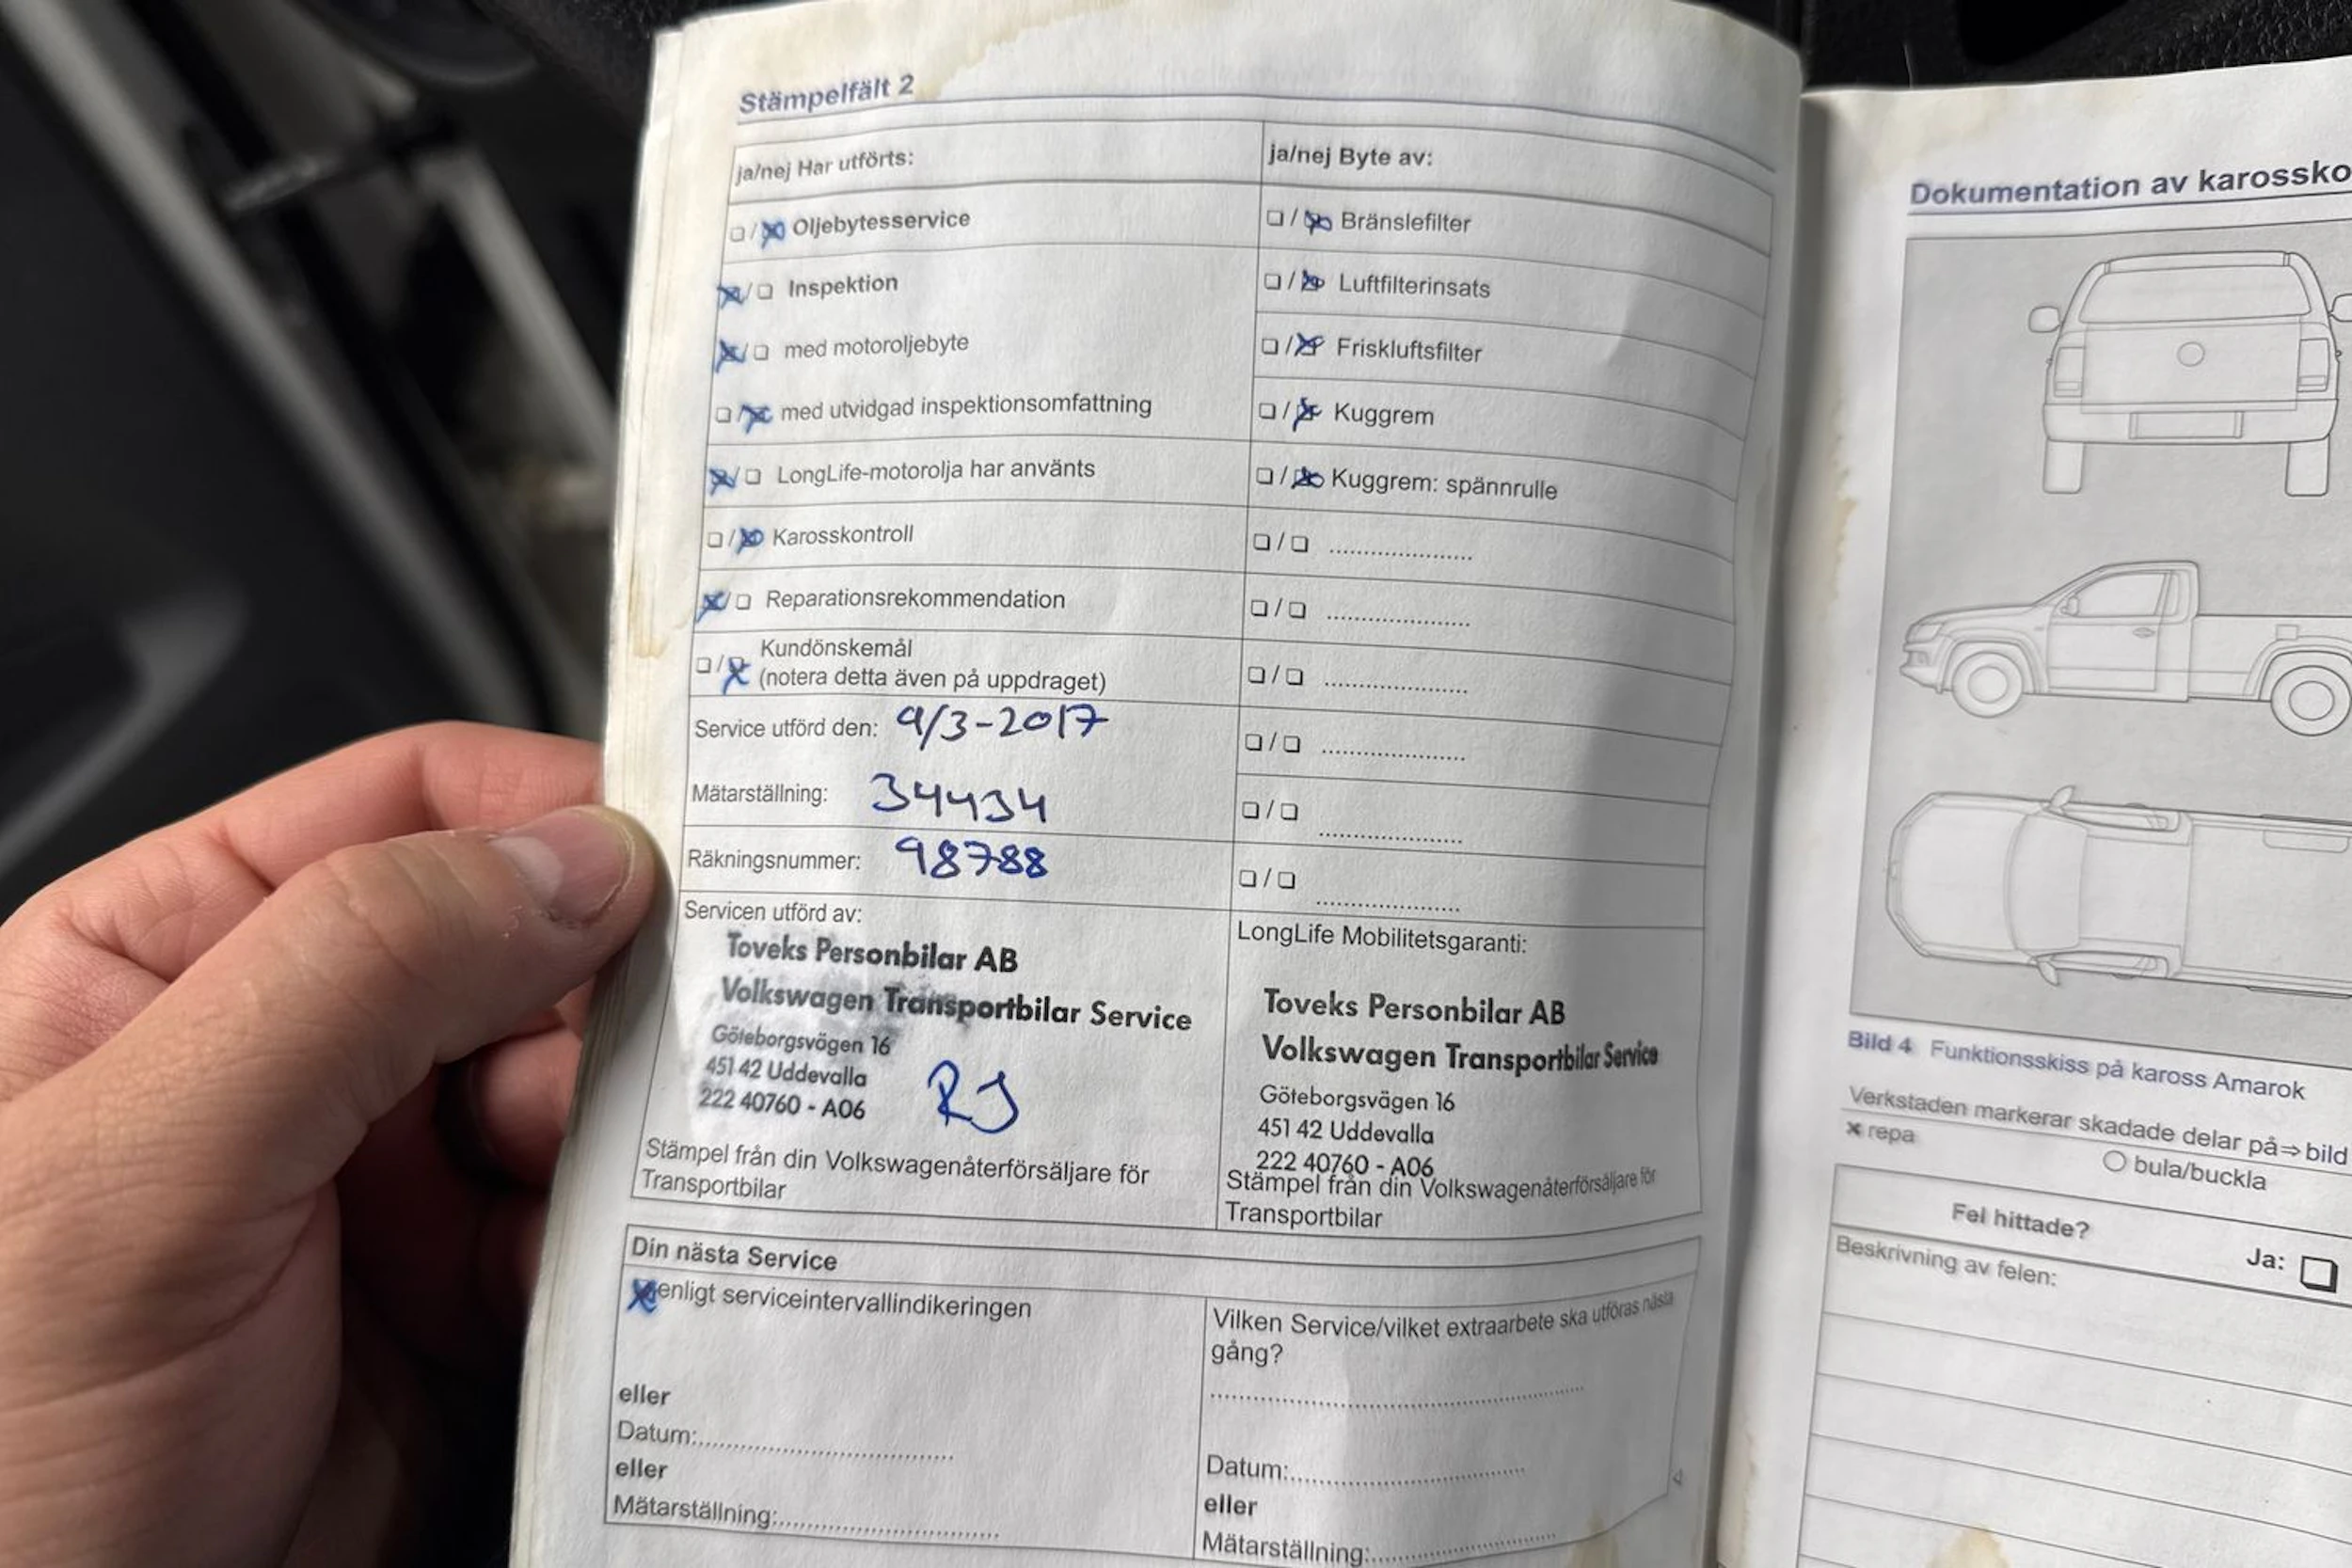 Stämpelfält 2
ja/nej Har utförts:
☐/☒ Oljebytesservice
☒/☐ Inspektion
☒/☐ med motoroljebyte
☐/☒ med utvidgad inspektionsomfattning
☒/☐ LongLife-motorolja har använts
☐/☒ Karosskontroll
☒/☐ Reparationsrekommendation
☐/☒ Kundönskemål
(notera detta även på uppdraget)
Service utförd den: 9/3-2017
Mätarställning: 34434
Räkningsnummer: 98788
Servicen utförd av:
Toveks Personbilar AB
Volkswagen Transportbilar Service
Göteborgsvägen 16
451 42 Uddevalla
222 40760 - A06
RJ
Stämpel från din Volkswagenåterförsäljare för
Transportbilar
ja/nej Byte av:
☐/☒ Bränslefilter
☐/☒ Luftfilterinsats
☐/☒ Friskluftsfilter
☐/☒ Kuggrem
☐/☒ Kuggrem: spännrulle
☐/☐ ....................
☐/☐ ....................
☐/☐ ....................
☐/☐ ....................
☐/☐ ....................
☐/☐ ....................
LongLife Mobilitetsgaranti:
Toveks Personbilar AB
Volkswagen Transportbilar Service
Göteborgsvägen 16
451 42 Uddevalla
222 40760 - A06
Stämpel från din Volkswagenåterförsäljare för
Transportbilar
Din nästa Service
☒ enligt serviceintervallindikeringen
eller
Datum:....................
eller
Mätarställning:....................
Vilken Service/vilket extraarbete ska utföras nästa
gång?
....................
Datum:....................
eller
Mätarställning:....................
Dokumentation av karossko
Bild 4 Funktionsskiss på kaross Amarok
Verkstaden markerar skadade delar på⇒bild
× repa
○ bula/buckla
Fel hittade?
Ja: ☐
Beskrivning av felen: